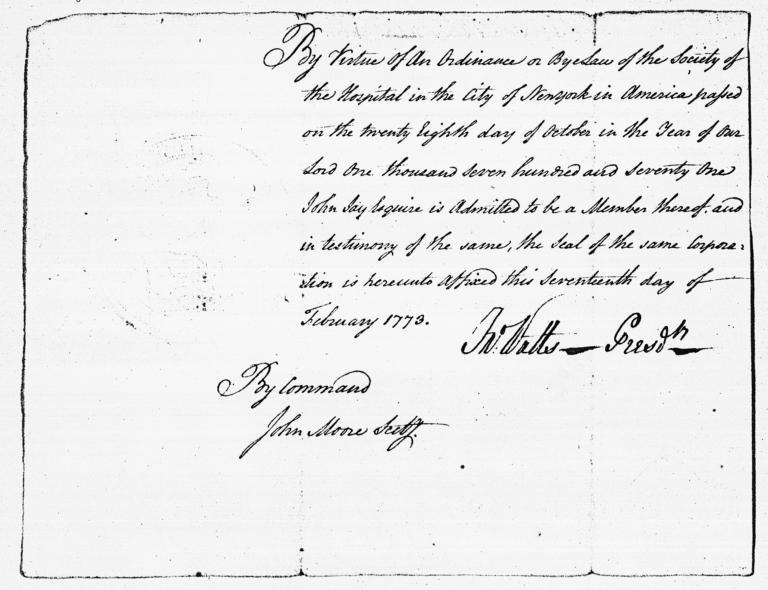 By Virtue Of An Ordinance or Bye Law of the Society of
the Hospital in the City of Newyork in America passed
on the twenty Eighth day of October in the Year of Our
Lord One thousand Seven hundred and Seventy One
John Jay Esquire is Admitted to be a Member thereof. and
in testimony of the same, the Seal of the same Corpora:
:tion is hereunto Affixed this Seventeenth day of
February 1773.
Jno. Watts — Presdt
By Command
John Moore Secty.